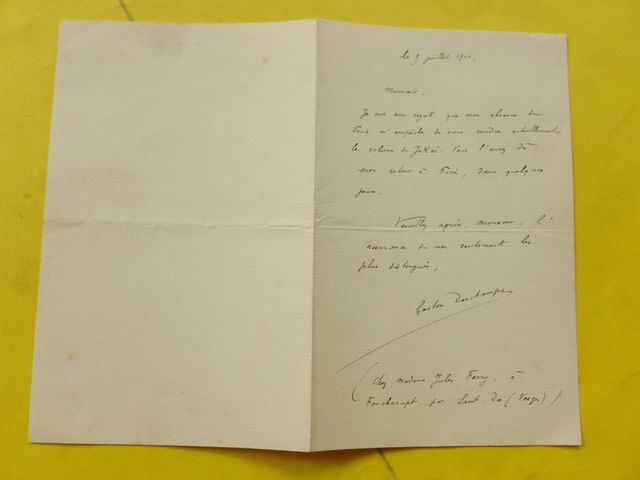 le 9 juillet 1900,
Monsieur,
Je suis au regret que mon absence de
Paris m'empêche de vous rendre actuellement
le volume de Jokaï. Vous l'aurez dès
mon retour à Paris, dans quelques
jours.
Veuillez agréer, monsieur, l'
assurance de mes sentiments les
plus distingués,
Gaston Deschamps
(Chez madame Jules Ferry, à
Foucharupt, par Saint-Dié (Vosges))